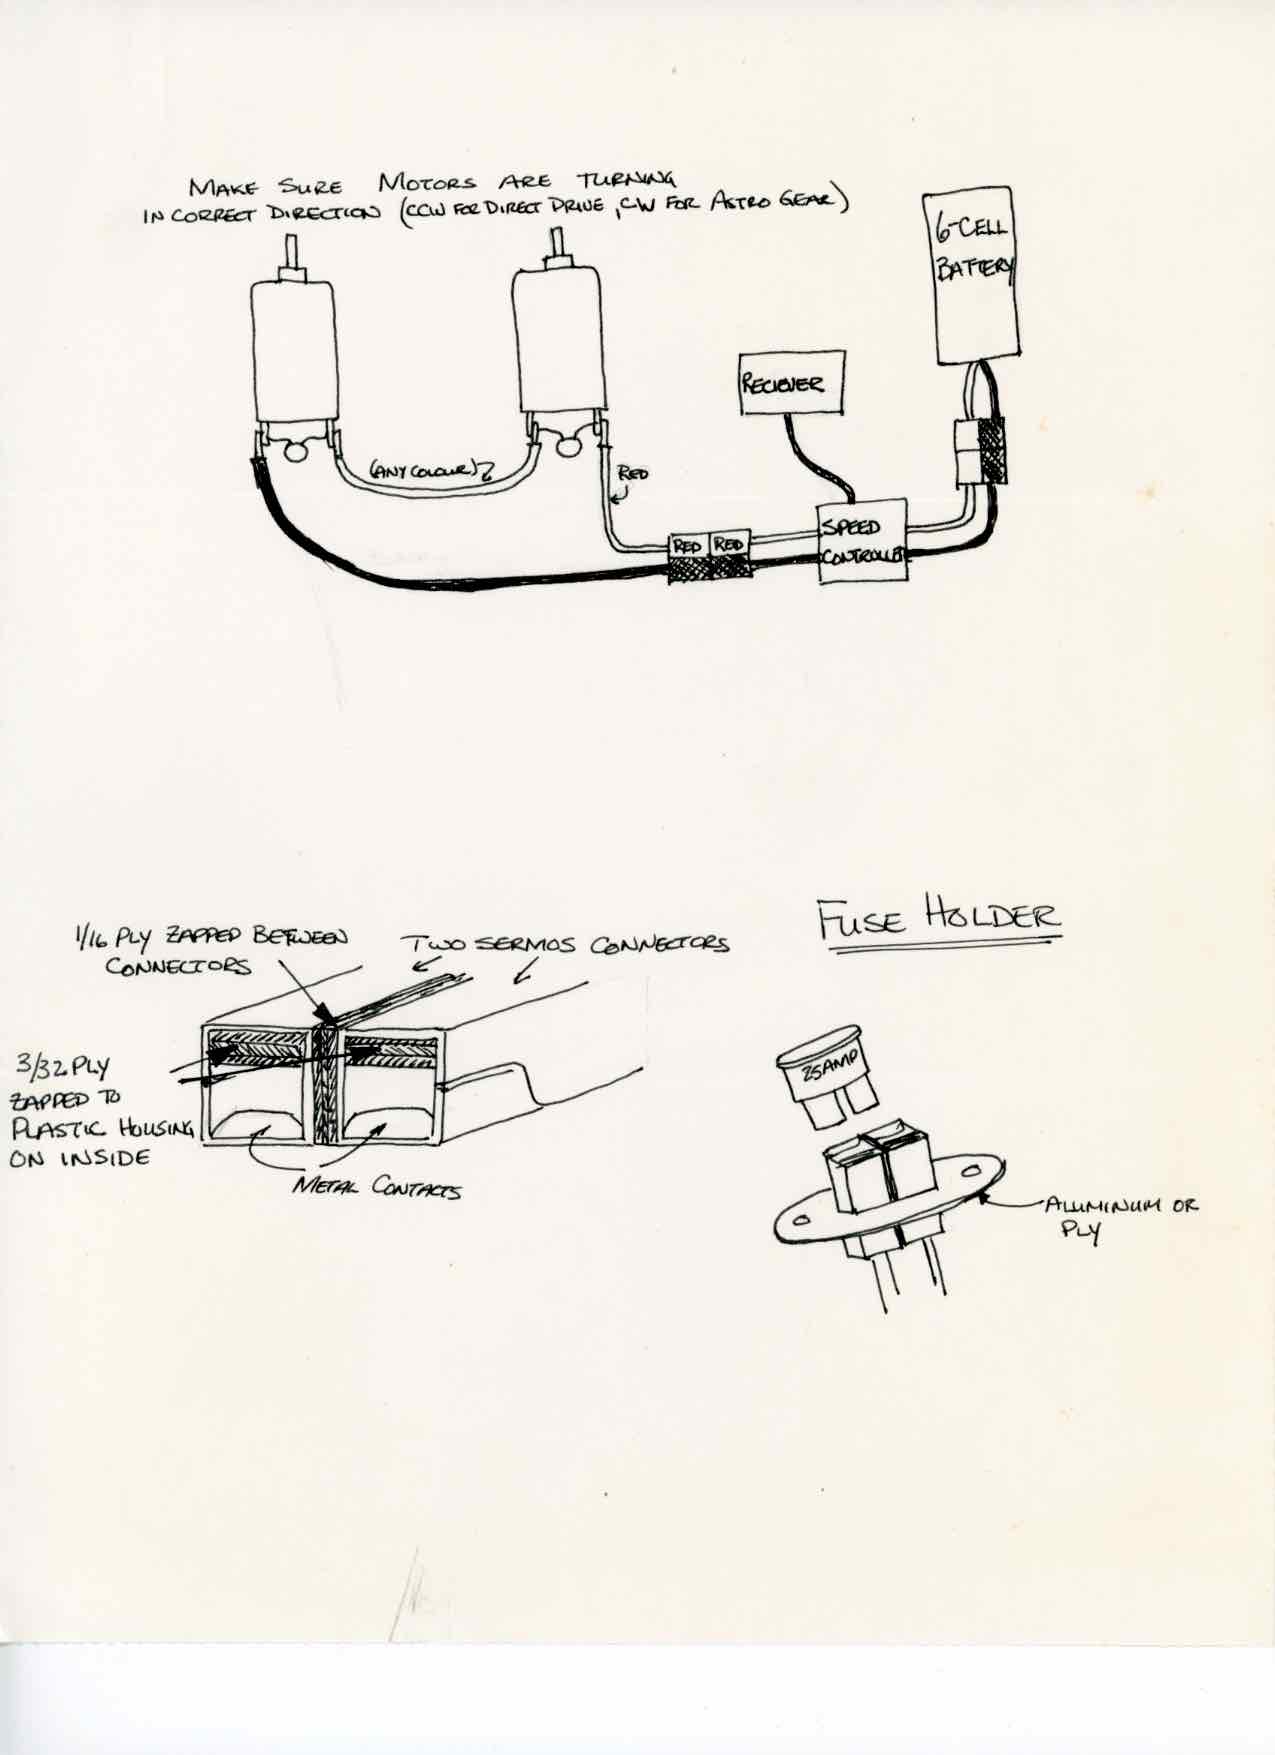 MAKE SURE MOTORS ARE TURNING
IN CORRECT DIRECTION (CCW FOR DIRECT DRIVE, CW FOR ASTRO GEAR)
6-CELL
BATTERY
RECIEVER
(ANY COLOUR)
RED
RED RED
SPEED
CONTROLLER
FUSE HOLDER
1/16 PLY ZAPPED BETWEEN
CONNECTORS
TWO SERMOS CONNECTORS
3/32 PLY
ZAPPED TO
PLASTIC HOUSING
ON INSIDE
METAL CONTACTS
25AMP
ALUMINUM OR
PLY